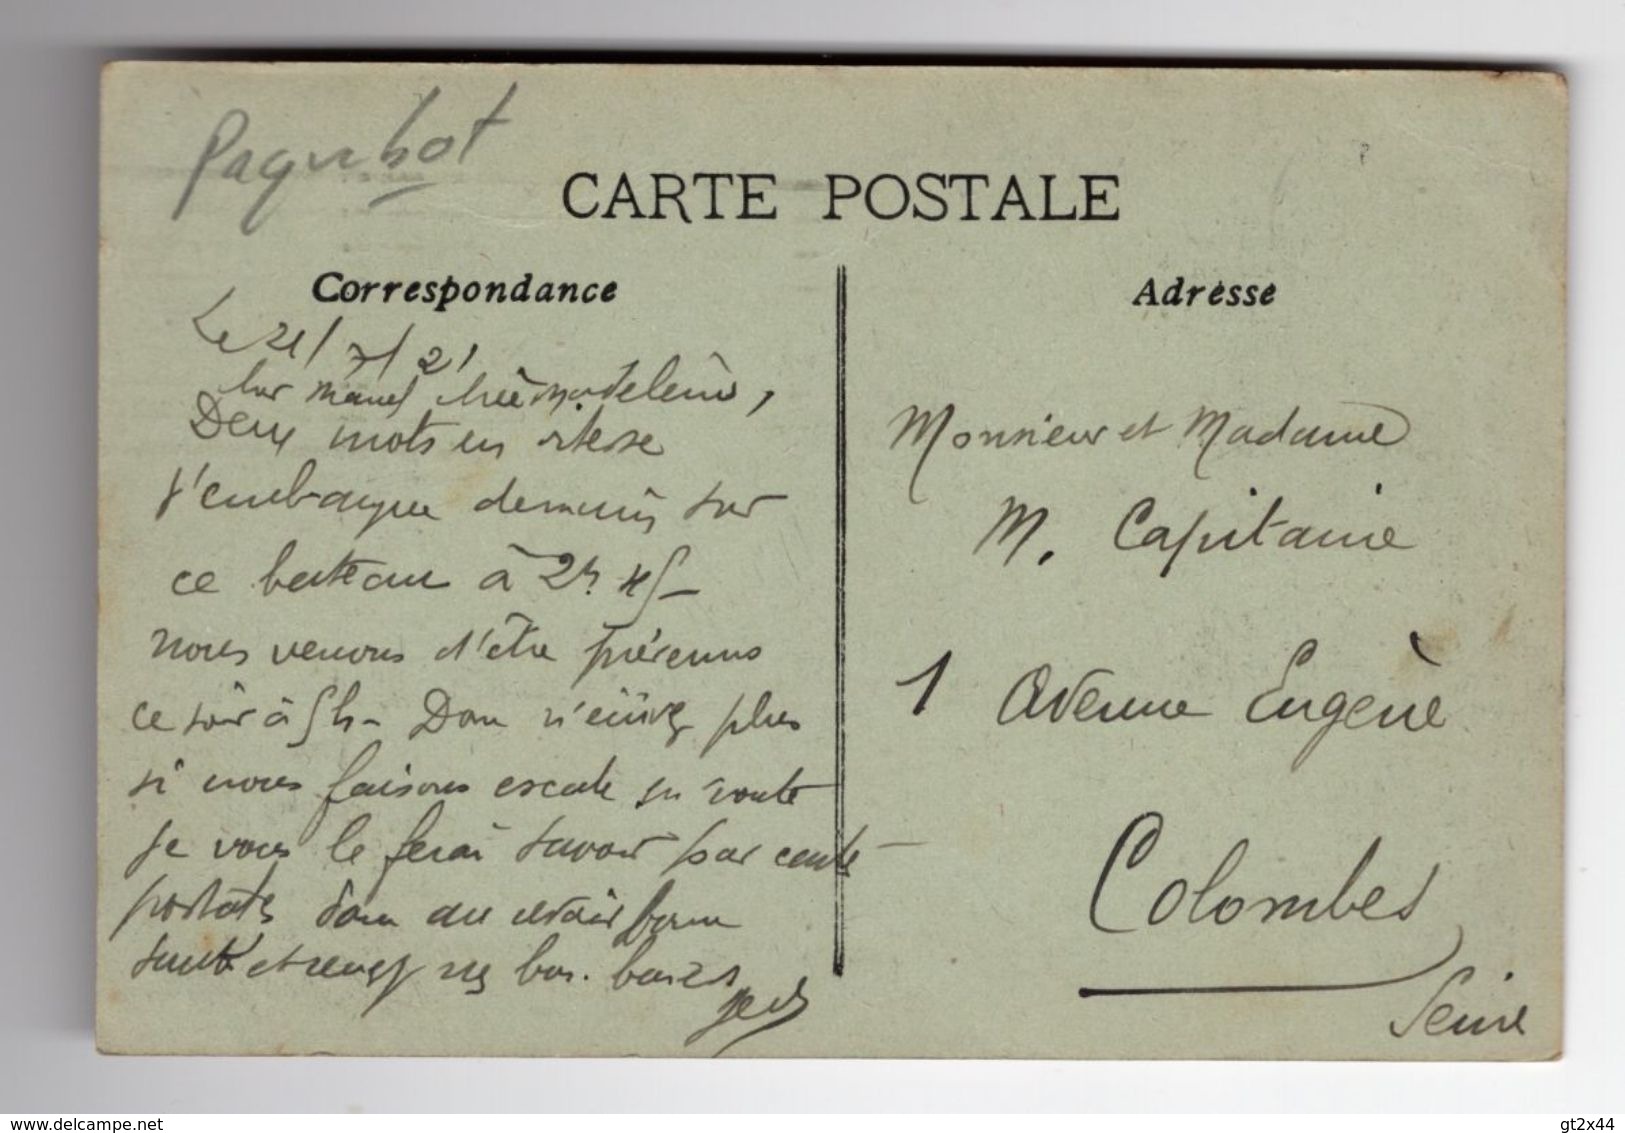 Paquebot
CARTE POSTALE
Correspondance
Le 21/7/21
Deux mots en vitesse
j'embarque demain sur
ce bateau à
nous venons d'être prévenus
ce soir à 5h - Donc n'écrivez plus
si nous faisons escale en route
je vous le ferai savoir par carte
postale donc au revoir bonne
santé et recevez mes bons baisers
Adresse
Monsieur et Madame
M. Capitaine
1 Avenue Eugène
Colombes
Seine
delcampe.net
gt2x44